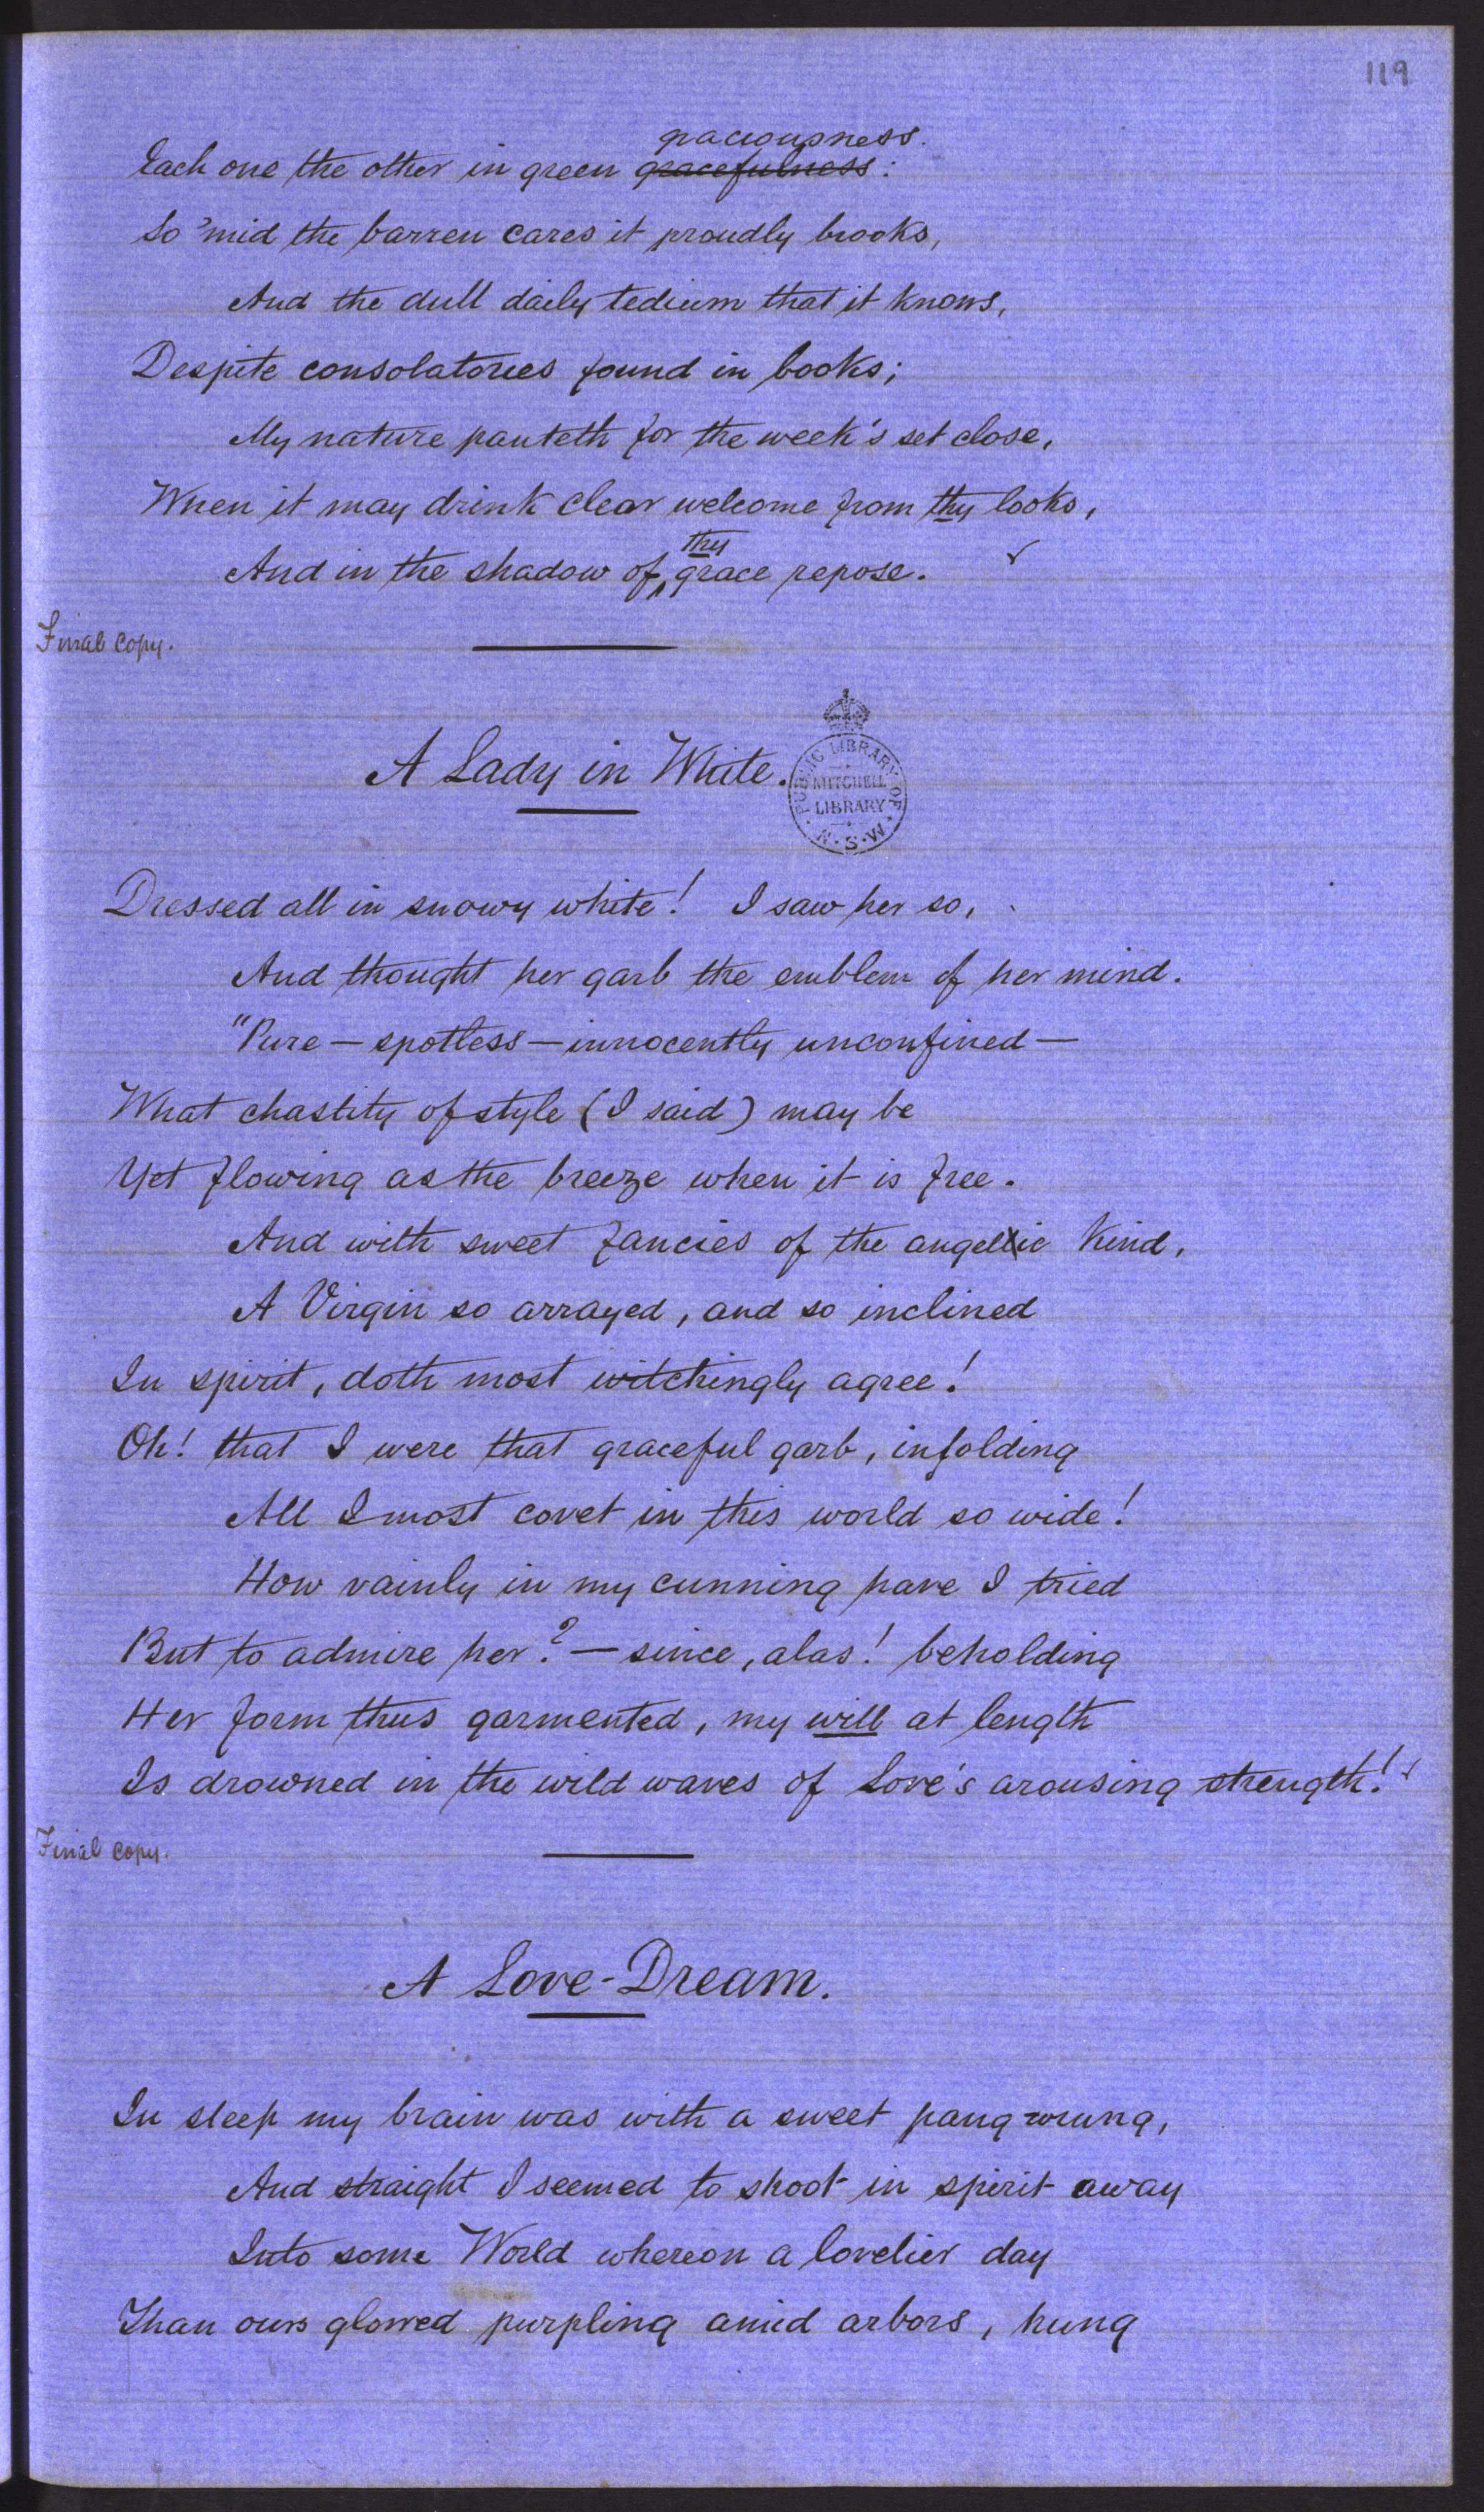 119
graciousness.
Each one the other in green gracefulness:
So 'mid the barren cares it proudly brooks,
And the dull daily tedium that it knows,
Despite consolatories found in books;
My nature panteth for the week's set close,
When it may drink clear welcome from thy looks,
thy
And in the shadow of grace repose. ✓
Final copy.
A Lady in White.
PUBLIC LIBRARY OF N.S.W.
MITCHELL LIBRARY
Dressed all in snowy white! I saw her so,
And thought her garb the emblem of her mind.
"Pure — spotless — innocently unconfined —
What chastity of style (I said) may be
Yet flowing as the breeze when it is free.
And with sweet fancies of the angelic kind,
A Virgin so arrayed, and so inclined
In spirit, doth most witchingly agree!
Oh! that I were that graceful garb, infolding
All I most covet in this world so wide!
How vainly in my cunning have I tried
But to admire her? — since, alas! beholding
Her form thus garmented, my will at length
Is drowned in the wild waves of Love's arousing strength! ✓
Final copy.
A Love-Dream.
In sleep my brain was with a sweet pang wrung,
And straight I seemed to shoot in spirit away
Into some World whereon a lovelier day
Than ours glowed purpling amid arbors, hung